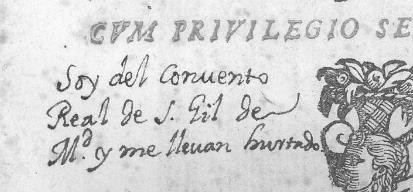 CVM PRIVILEGIO SE
Soy del Convento
Real de S. Gil de
M.d y me lleuan hurtado